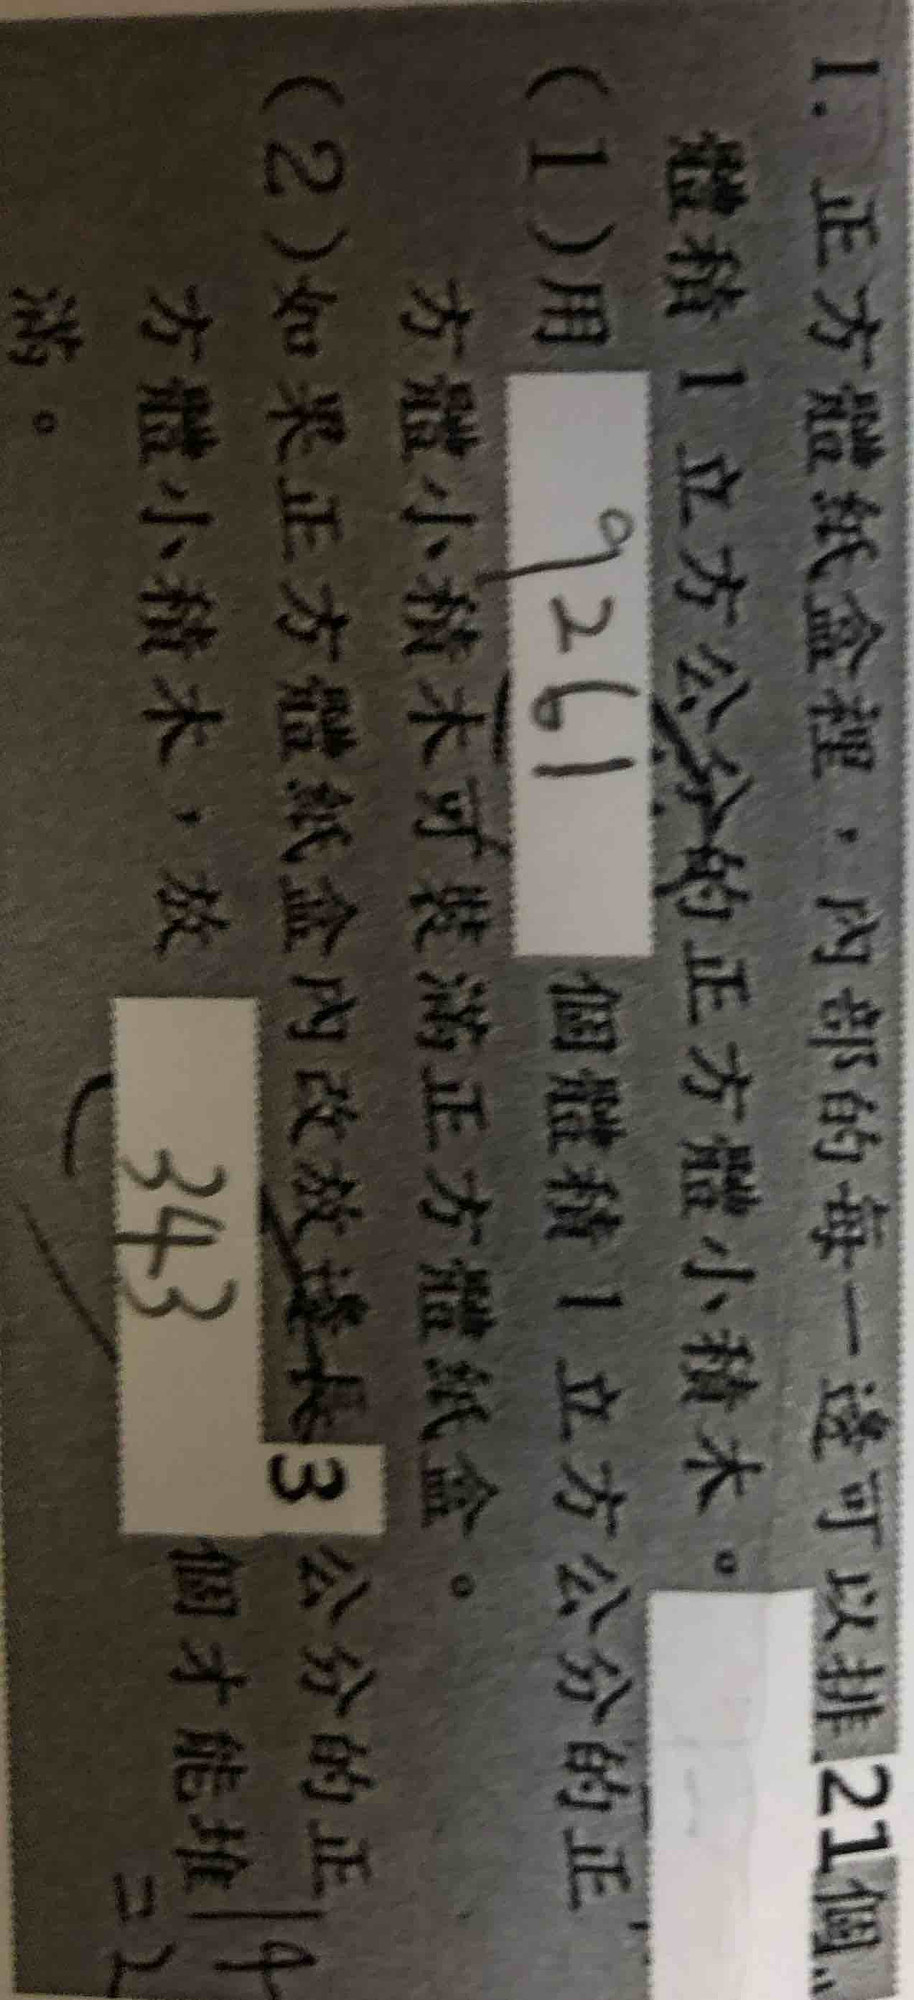 1. 正方體紙盒裡，內部的每一邊可以排 21個
體積 1 立方公分的正方體小積木。
(1)用 9261 個體積 1 立方公分的正
方體小積木可裝滿正方體紙盒。
(2)如果正方體紙盒內改放邊長 3 公分的正
方體小積木，放 343 個才能堆
滿。
14